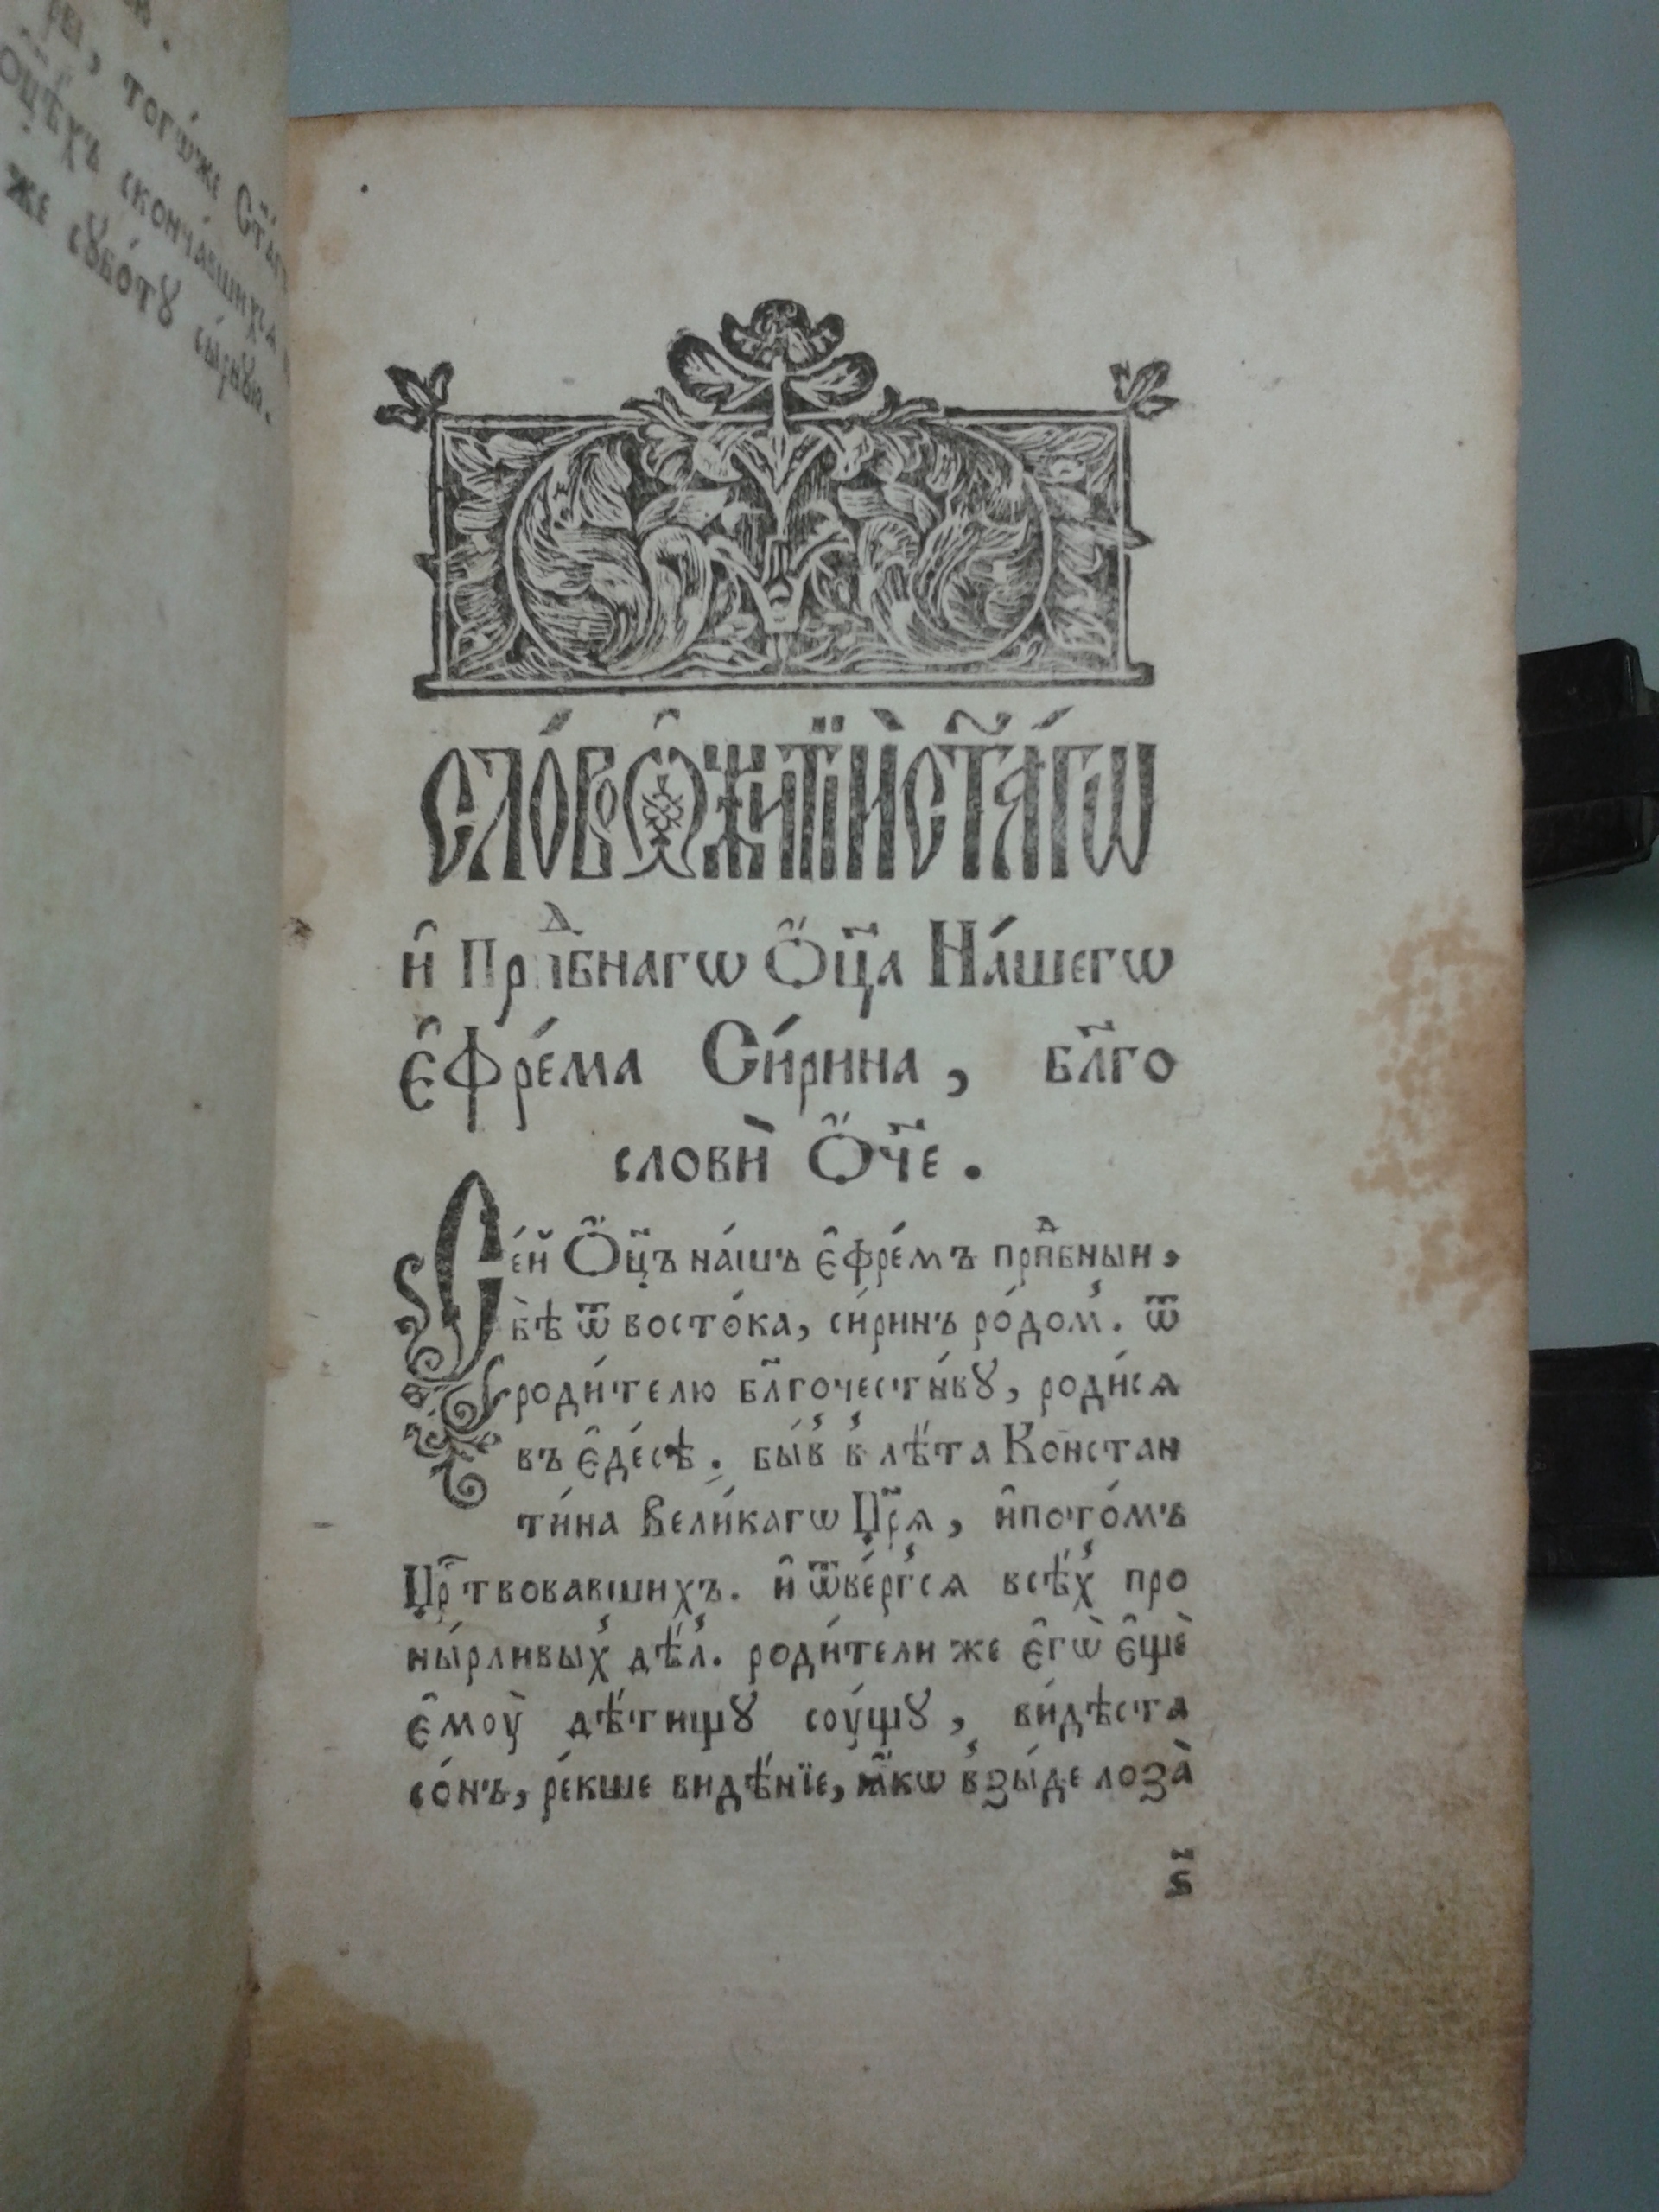 тогѡ́же Ст҃а́г
ѻц҃ѣхъ сконча́вшихсѧ
же сꙋбо́тꙋ сы́рнꙋю.
СЛО́ВО Ѽ ЖИТІЍ СТ҃А́ГѠ
и҆ Прпⷣбнагѡ Ѻ҆ц҃а На́шегѡ
Є҆фре́ма Си́рина, бл҃го
словѝ Ѻ҆́ч҃е.
Се́й Ѻ҆ц҃ъ на́шъ є҆фре́мъ прпⷣбныи,
бѣ̀ ѿ восто́ка, си́ринъ ро́дом̾. ѿ
роди́телю бл҃гочести́вꙋ, роди́сѧ
въ є҆де́сѣ. бы́в̾ в̾ лѣ́та Констан
ти́на Вели́кагѡ Цр҃ѧ, и҆пото́мъ
Цр҃твовавшихъ. и҆ ѿве́рг̾сѧ всѣ́х̾ про
ны́рливых̾ дѣ́л̾. роди́тели же є҆гѡ̀ є҆щѐ
є҆моу̀ дѣ́тищꙋ соу́щꙋ, ви́дѣста
со́нъ, ре́кше видѣ́нїе, ꙗ҆́кѡ в̾зы́де лоза̀
ѕ҃